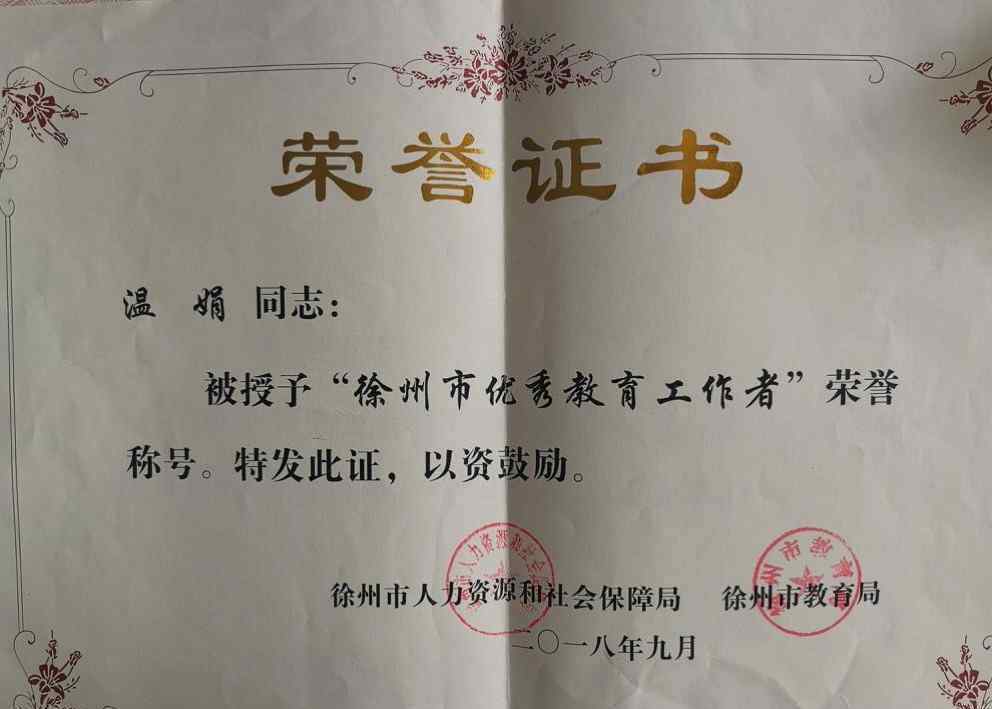 荣誉证书
温 娟 同志：
被授予“徐州市优秀教育工作者”荣誉
称号。特发此证，以资鼓励。
徐州市人力资源和社会保障局 徐州市教育局
二〇一八年九月